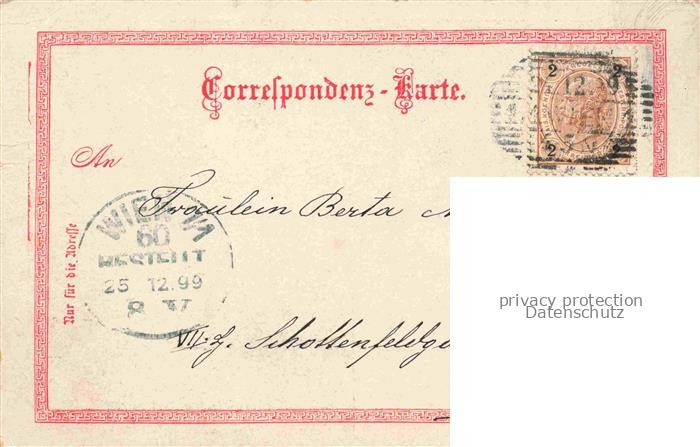 Correspondenz-Karte.
2 2
12.
2
An
Fräulein Berta
WIEN
60
BESTELLT
25 12.99
8 V
Nur für die Adresse
VII. Z. Schottenfeldga
privacy protection
Datenschutz